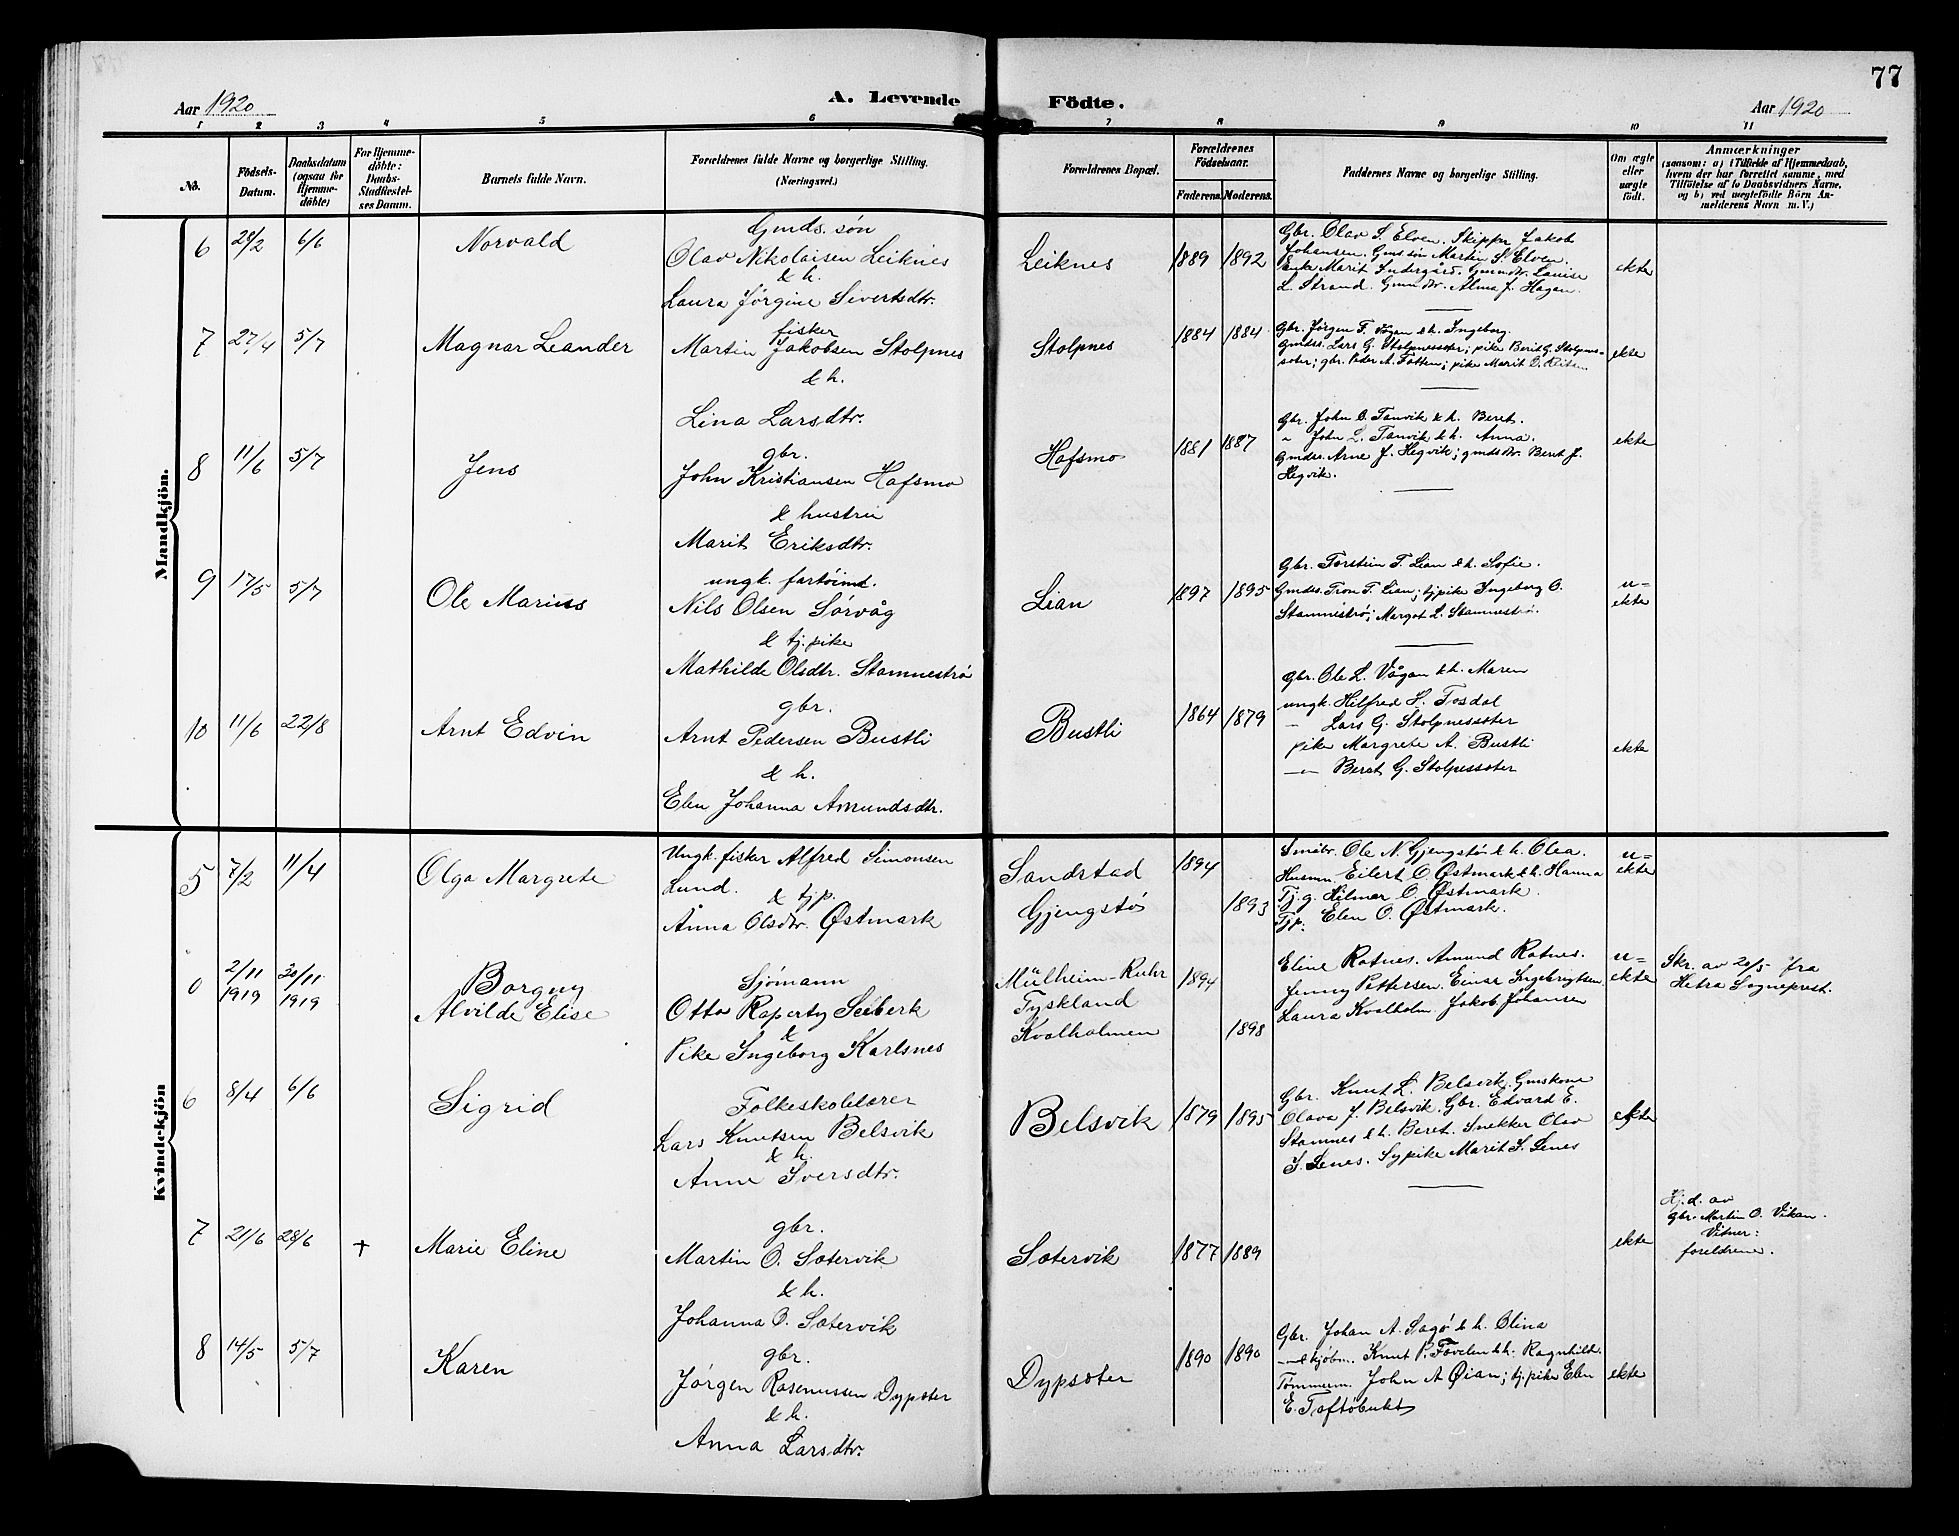 77
Aar 1920
A. Levende
Födte.
Aar 1920
1 2 3 4 5 6 7 8 9 10 11
No.
Födsels-
Datum.
Daabsdatum
(ogsaa for
Hjemme-
döbte)
For Hjemme-
döbte:
Daabs-
Stadfæstel-
ses Datum.
Barnets fulde Navn.
Forældrenes fulde Navne og borgerlige Stilling.
(Næringsvei.)
Forældrenes Bopæl.
Forældrenes
Födselsaar.
Faderens. Moderens.
Faddernes Navne og borgerlige Stilling.
Om ægte
eller
uægte
födt.
Anmærkninger
(saasom: a) i Tilfælde af Hjemmedaab,
hvem der har forrettet samme, med
Tilföielse af to Daabsvidners Navne,
og b) ved uægtefödte Börn An-
melderens Navn m. V.)
Mandkjön.
6 24/2 6/6 Norvald
Gmds. søn
Olav Nikolaisen Leiknes
& h.
Laura Jørgine Sivertsdtr.
Leiknes 1889 1892
Gbr. Olav S. Elven. Skippr Jakob
Johansen. Gmdssøn Martin S. Elven.
Enke Marit Indergård. Gmmdtr. Louise
L. Strand. Gmmdtr. Alma J. Hagan.
ekte
7 27/4 5/7 Magnar Leander
fisker
Martin Jakobsen Stolpnes
& h.
Lina Larsdtr.
Stolpnes 1884 1884
Gbr. Jørgen F. Vågan & h. Ingeborg.
Gmds. Lars G. Stolpnessæter; pike Berit G. Stolpnes-
sæter; gbr. Peder A. Tøtten; pike Marit O. Reitan.
ekte
8 11/6 5/7 Jens
gbr.
John Kristiansen Hafsmo
& hustru
Marit Eriksdtr.
Hafsmo 1881 1887
Gbr. John O. Tanvik & h. Beret.
" John L. Tanvik & h. Anna.
Gmds. Arne J. Hegvik; gmdsdtr. Beret J.
Hegvik.
ekte
9 17/5 5/7 Ole Marius
ungk. fartøimd.
Nils Olsen Sørvåg
& tj. pike
Mathilde Olsdtr. Stamnestrø
Lian 1897 1895
Gbr. Torstein T. Lian & h. Sofie.
Gmds. Tron T. Lian; tj.pike Ingeborg O.
Stamnestrø; Margot L. Stamnestrø.
u-
ekte
10 11/6 22/8 Arnt Edvin
gbr.
Arnt Pedersen Bustli
& h.
Elen Johanna Amundsdtr.
Bustli 1864 1879
Gbr. Ole L. Vågan & h. Maren
ungk. Hilfred S. Fosdal
— Lars G. Stolpnessæter
pike Margrete A. Bustli
—"— Beret G. Stolpessæter
ekte
Kvindekjön
5 7/2 11/4 Olga Margrete
Ungk. fisker Alfred Simonsen
Lund.
& tjp.
Anna Olsdtr. Østmark
Sandstad 1894
Gjengstø 1893
Småbr. Ole N. Gjengstø & h. Olea.
Husmn. Eilert O Østmark & h. Hanna
Tj.g. Hilmar O Østmark.
Tjp. Elen O. Østmark.
u-
ekte
0 2/11 1919 30/11 1919 Borgny
Alvilde Elise
Sjømann
Otto Raperty Seiberk
&
Pike Ingeborg Karlsnes
Mülheim-Ruhr 1894
Tyskland
Kvalholmen 1898
Eline Ratnes. Amund Ratnes.
Jenny Pettersen. Einar Ingebrigtsen.
Laura Kvalholm. Jakob Johansen
u-
ekte
Skr. av 20/5 fra
Hitra Sogneprest.
6 8/4 6/6 Sigrid
Folkeskolelærer
Lars Knutsen Belsvik
& h.
Anne Iversdtr.
Belsvik 1879 1895
Gbr. Knut L. Belsvik. Gmskone
Olava J. Belsvik. Gbr. Edvard E.
Stamnes & h. Beret. Snekker Olav
I. Lenes. Sypike Marit S. Lenes
ekte
7 21/6 28/6 + Marie Eline
gbr.
Martin O. Sætervik
& h.
Johanna O. Sætervik
Sætervik 1877 1889
ekte
Hj.d. av
gbr. Martin O. Vikan.
Vitner:
foreldrene.
8 14/5 5/7 Karen
gbr.
Jørgen Rasmussen Dypsæter
& h.
Anna Larsdtr.
Dypsæter 1890 1890
Gbr. Johan A. Sagø & h. Olina
—"— & kjøbm. Knut P. Føvelen & h. Ragnhild.
Tømmerm. John A Øian; tj.pike Elen
E. Toftøbukt
ekte